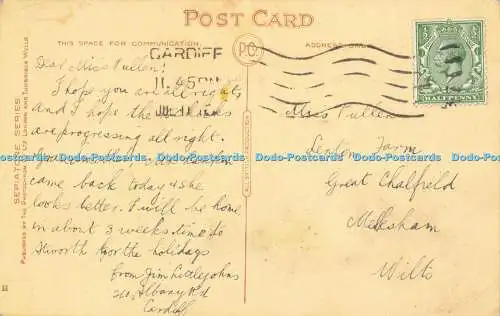 POST CARD
THIS SPACE FOR COMMUNICATION.
ADDRESS
CARDIFF
11.45PM
JUL 11
P.C.
HALFPENNY
SEPIATURE SERIES
PUBLISHED BY THE PHOTOCHROM CO. LTD LONDON AND TUNBRIDGE WELLS
Dear Miss Pullen!
I hope you are all right
and I hope the chicks
are progressing all right.
came back today & she
looks better. I will be home
in about 3 weeks time to
for the holidays
from Jim Littlejohns
210, Albany Rd
Cardiff
Miss Pullen
Lenton Farm
Great Chalfield
Melksham
Wilts
Dodo-Postcards Dodo-Postcards Dodo-Postcards Dodo-Postcards Dodo-Postcards Dodo-Postcards